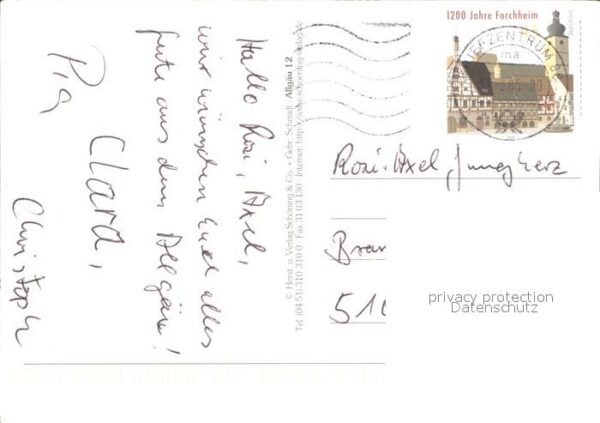 Hallo Rosi, Axel,
wir wünschen Euch alles
Gute aus dem Allgäu!
Pia
Clara,
Christoph
© Herst. u. Verlag Schöning & Co. + Gebr. Schmidt Allgäu 12
Tel. (04 51) 310 310 0 Fax 31 03 130 Internet: http://www.schoening-verlag.de
1200 Jahre Forchheim
BRIEFZENTRUM 86
ma
Rosi + Axel Jungherz
Bran
510
privacy protection
Datenschutz